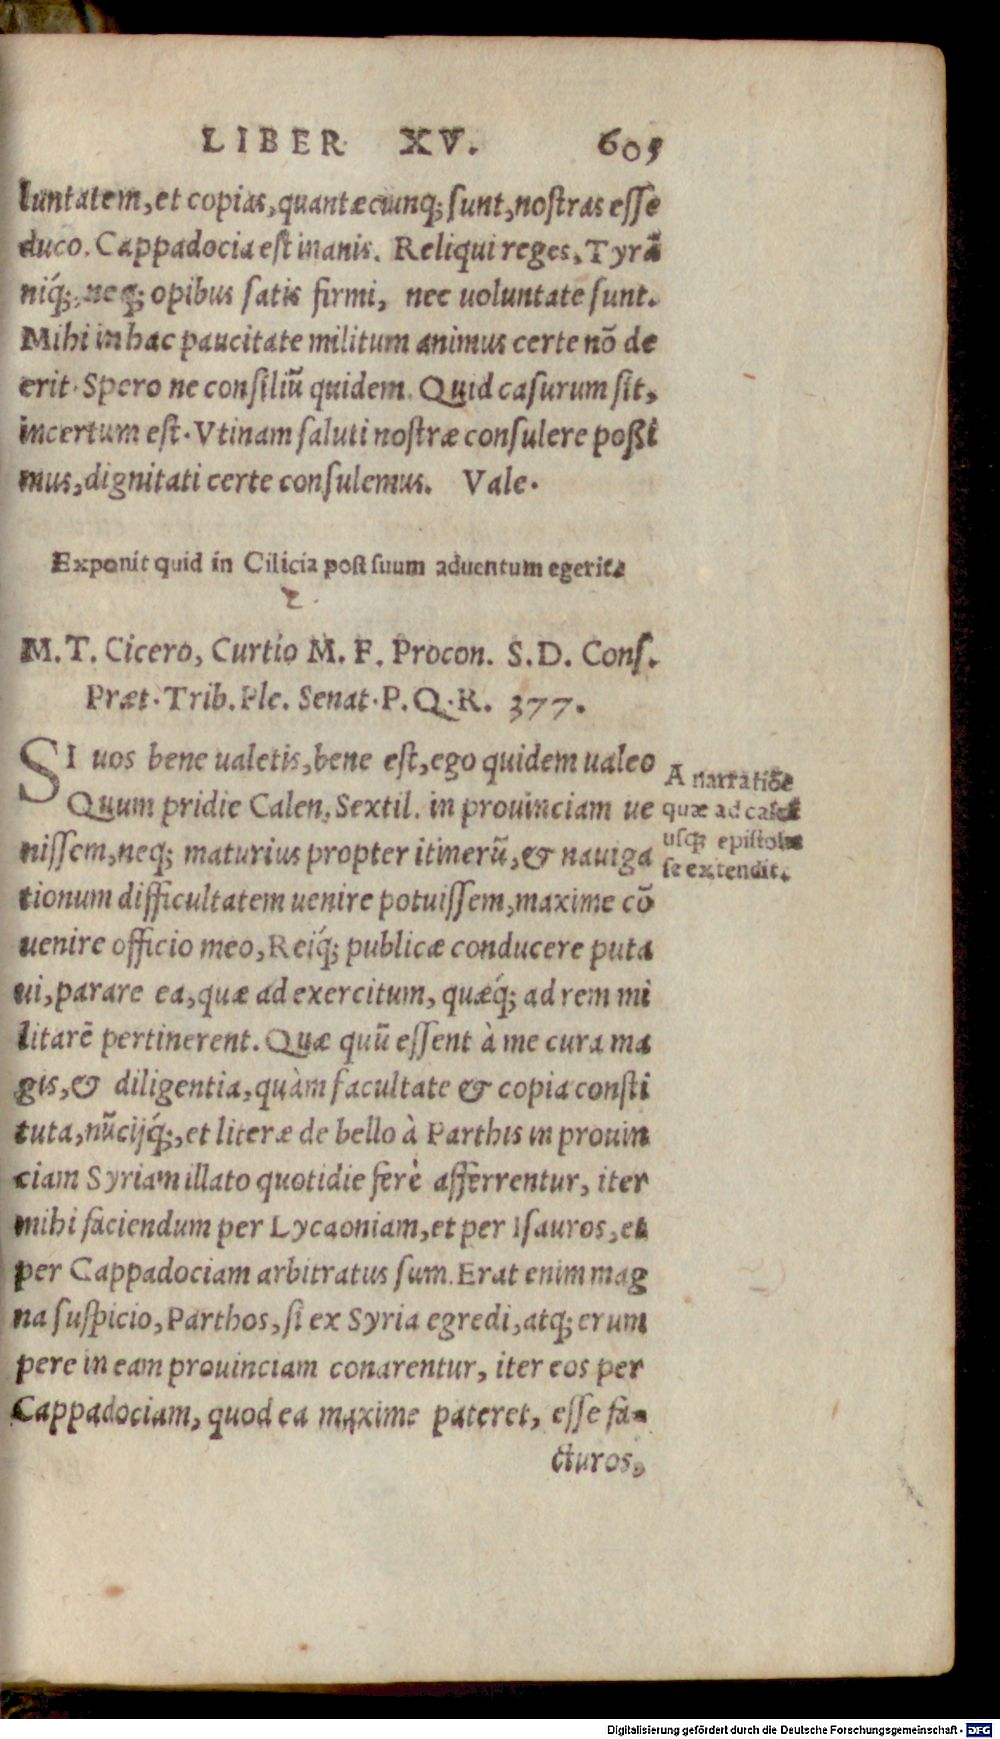 LIBER XV. 605
luntatem, et copias, quantæcunq; sunt, nostras esse
duco. Cappadocia est inanis. Reliqui reges, Tyrã
niq́;, neq; opibus satis firmi, nec uoluntate sunt.
Mihi in hac paucitate militum animus certe nõ de
erit. Spero ne consiliũ quidem. Quid casurum sit,
incertum est. Vtinam saluti nostræ consulere poßi
mus, dignitati certe consulemus. Vale.
Exponit quid in Cilicia post suum aduentum egerit.
2.
M. T. Cicero, Curtio M. F. Procon. S. D. Cons.
Præt. Trib. Ple. Senat. P. Q. R. 377.
SI uos bene ualetis, bene est, ego quidem ualeo
Quum pridie Calen. Sextil. in prouinciam ue
nissem, neq; maturius propter itinerũ, & nauiga
tionum difficultatem uenire potuissem, maxime cõ
uenire officio meo, Reiq́; publicæ conducere puta
ui, parare ea, quæ ad exercitum, quæq́; ad rem mi
litarẽ pertinerent. Quæ quũ essent à me cura ma
gis, & diligentia, quàm facultate & copia consti
tuta, nũcijq́;, et literæ de bello à Parthis in prouin
ciam Syriam illato quotidie ferè afferrentur, iter
mihi faciendum per Lycaoniam, et per Isauros, et
per Cappadociam arbitratus sum. Erat enim mag
na suspicio, Parthos, si ex Syria egredi, atq; erum
pere in eam prouinciam conarentur, iter eos per
Cappadociam, quod ea maxime pateret, esse fa-
cturos,
A narratiõe
quæ ad calcẽ
usq; epistolæ
se extendit.
Digitalisierung gefördert durch die Deutsche Forschungsgemeinschaft - DFG